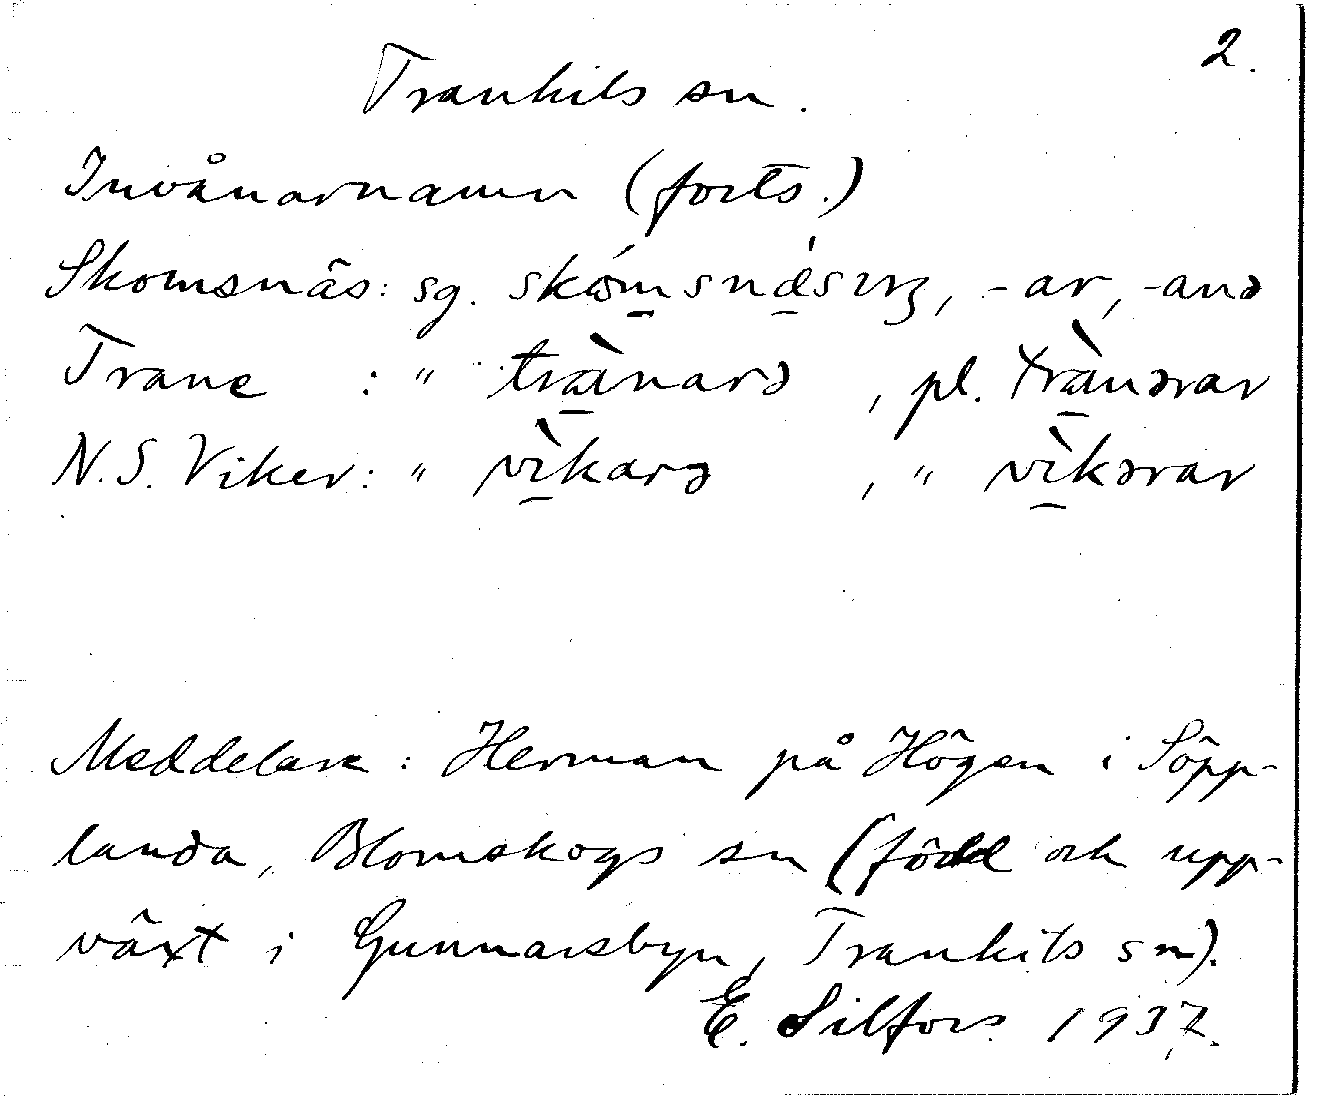 2.
Trankils sn.
Invånarnamn (forts.)
Skomsnäs: sg. -ar, -anə
Trane : " trànarə , pl. trànərar
N.S. Viker: " vìkarə , " vìkərar
Meddelare: Herman på Högen i Söpp-
landa, Blomskogs sn (född och upp-
växt i Gunnarsbyn, Trankils sn).
E. Silfors 1937.